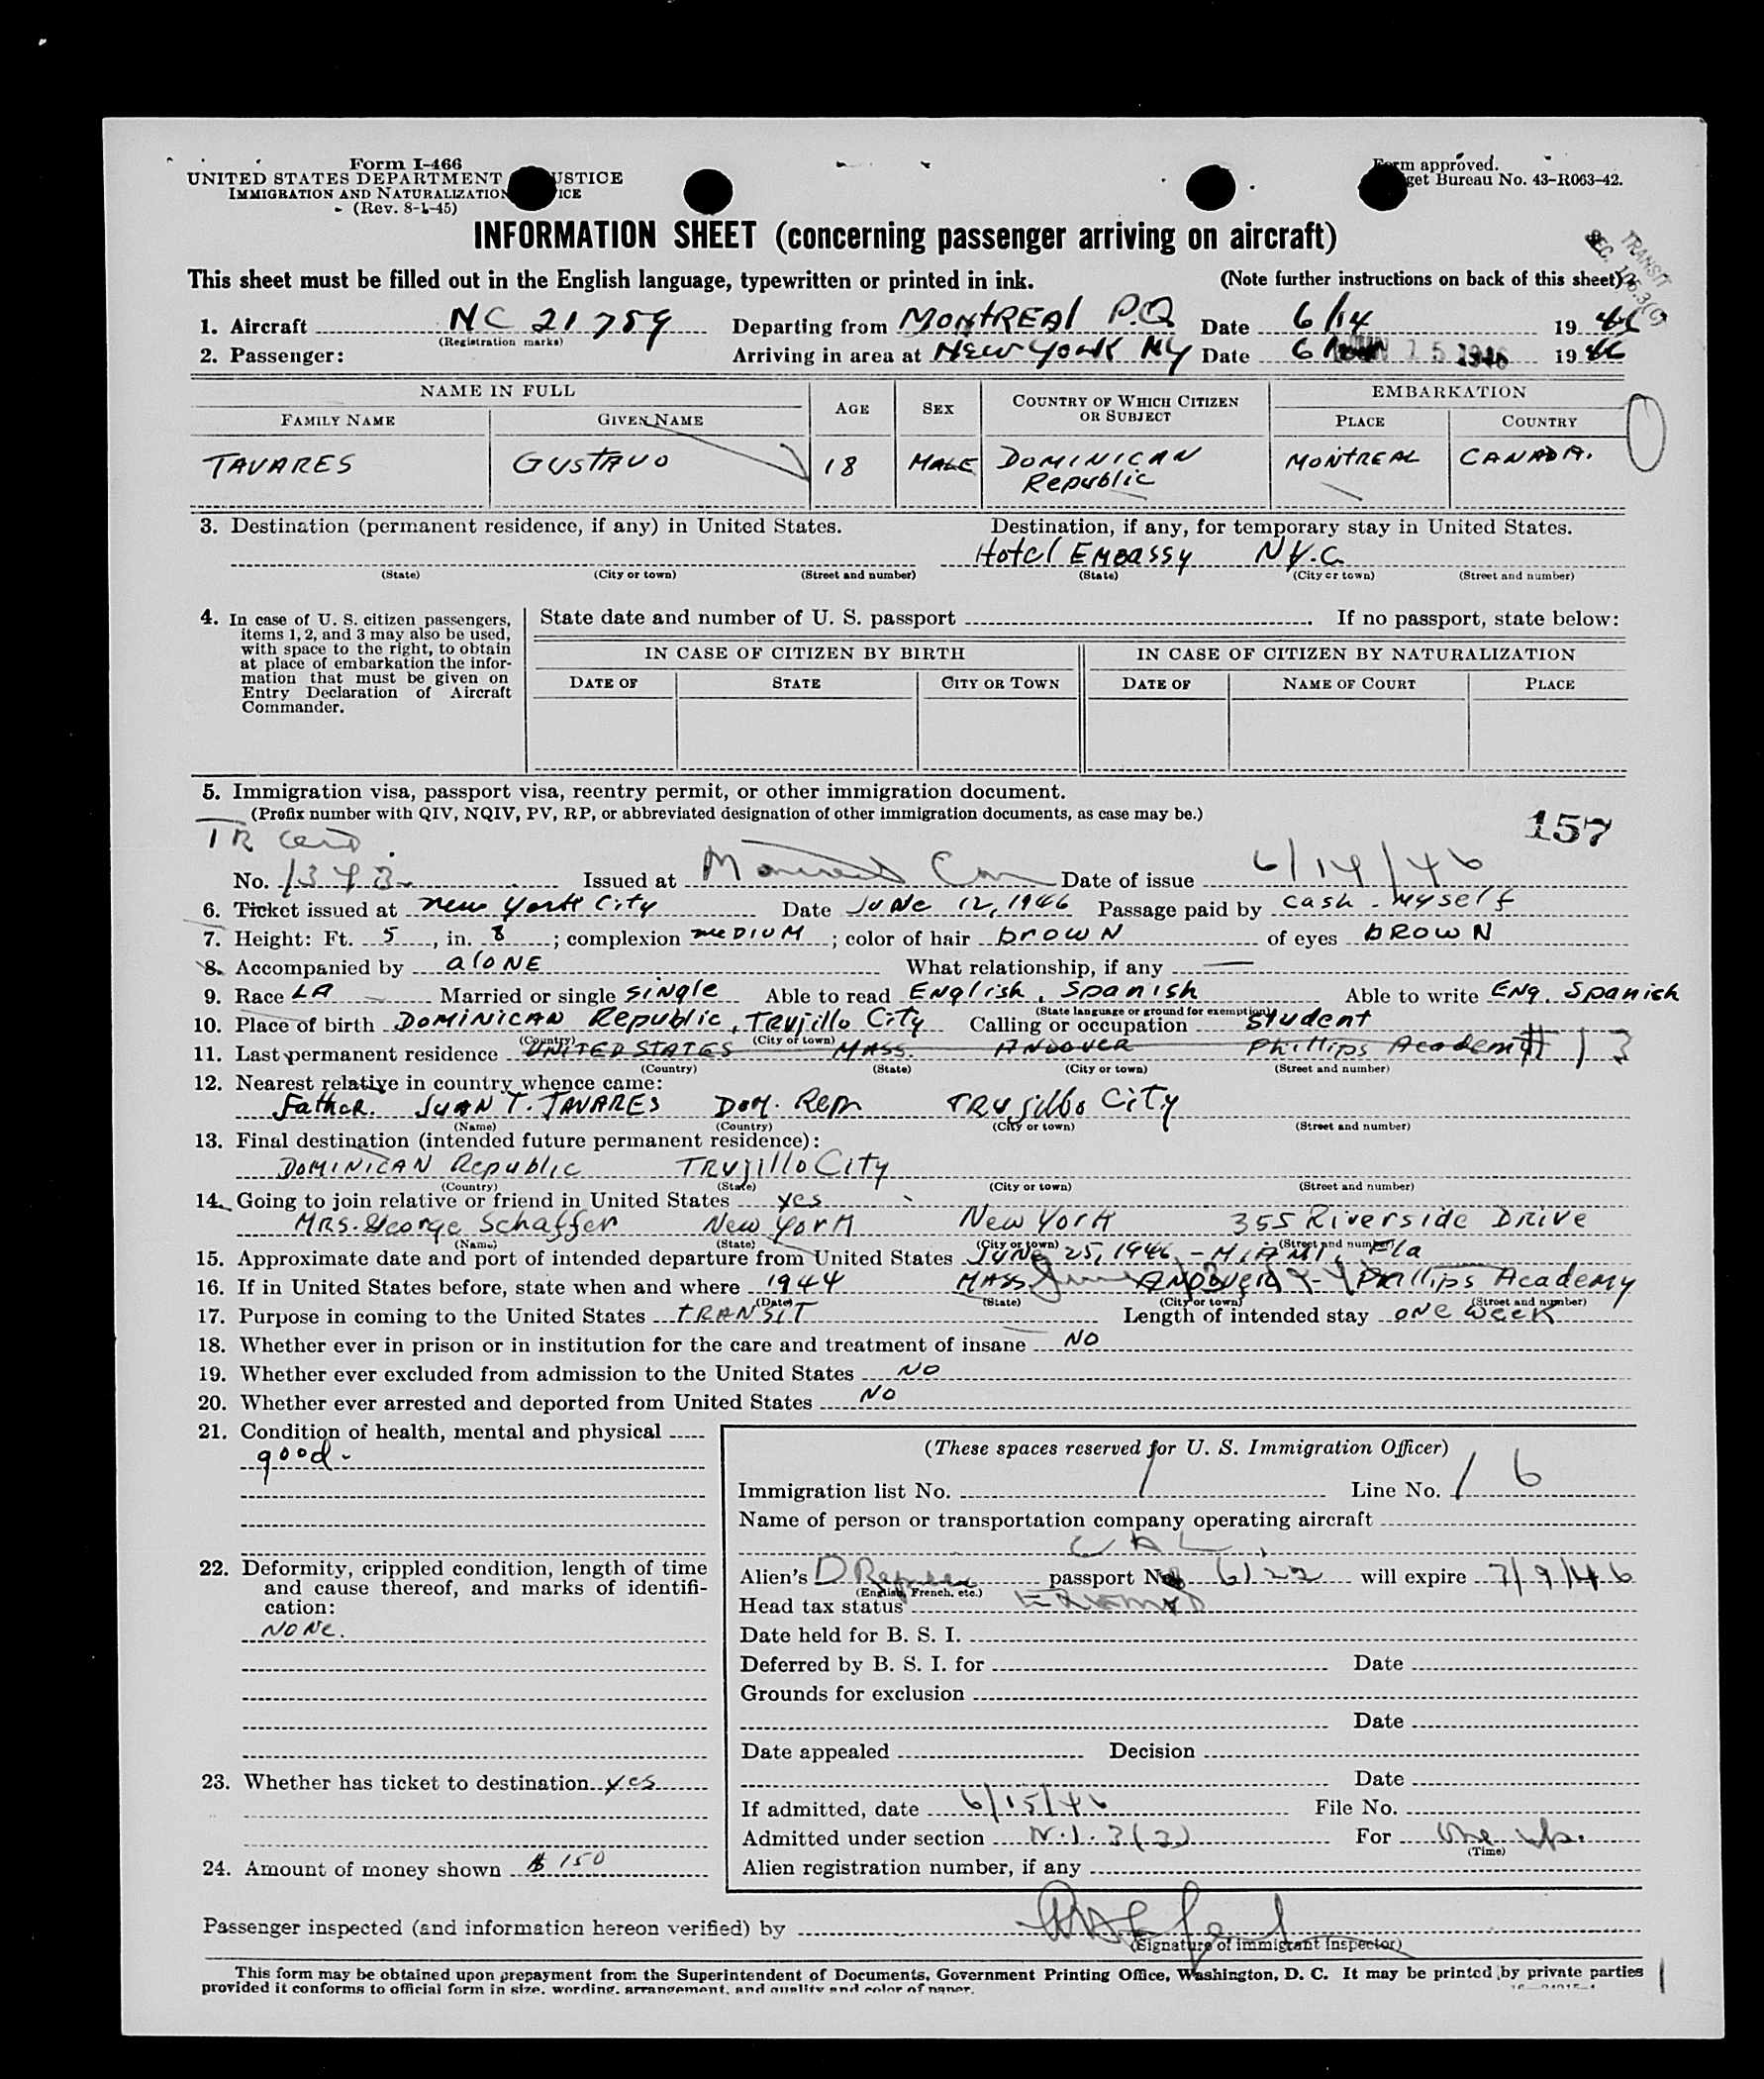 Form I-466
UNITED STATES DEPARTMENT USTICE
IMMIGRATION AND NATURALIZATION ICE
(Rev. 8-1-45)
Form approved.
get Bureau No. 43-R063-42.
INFORMATION SHEET (concerning passenger arriving on aircraft)
TRANSIT
SEC.
This sheet must be filled out in the English language, typewritten or printed in ink. (Note further instructions on back of this sheet)
1. Aircraft NC 21759 Departing from MONTREAL P.Q Date 6/14 1946
(Registration marks)
2. Passenger: Arriving in area at NEW YORK NY Date 6 JUN 15 1946 1946
NAME IN FULL AGE SEX COUNTRY OF WHICH CITIZEN OR SUBJECT EMBARKATION
FAMILY NAME GIVEN NAME PLACE COUNTRY
TAVARES GUSTAVO 18 MALE DOMINICAN Republic MONTREAL CANADA.
3. Destination (permanent residence, if any) in United States. Destination, if any, for temporary stay in United States.
Hotel EMBASSY N.Y.C.
(State) (City or town) (Street and number) (State) (City or town) (Street and number)
4. In case of U. S. citizen passengers, items 1, 2, and 3 may also be used, with space to the right, to obtain at place of embarkation the information that must be given on Entry Declaration of Aircraft Commander.
State date and number of U. S. passport If no passport, state below:
IN CASE OF CITIZEN BY BIRTH IN CASE OF CITIZEN BY NATURALIZATION
DATE OF STATE CITY OR TOWN DATE OF NAME OF COURT PLACE
5. Immigration visa, passport visa, reentry permit, or other immigration document.
(Prefix number with QIV, NQIV, PV, RP, or abbreviated designation of other immigration documents, as case may be.)
157
TR Card
No. 1343 Issued at Montreal Can Date of issue 6/14/46
6. Ticket issued at New York City Date JUNE 12, 1946 Passage paid by cash - myself
7. Height: Ft. 5, in. 8; complexion MEDIUM; color of hair brown of eyes BROWN
8. Accompanied by alone What relationship, if any —
9. Race LA Married or single single Able to read English, Spanish Able to write Eng. Spanish
(State language or ground for exemption)
10. Place of birth DOMINICAN Republic, Trujillo City Calling or occupation student
(Country) (City or town)
11. Last permanent residence UNITED STATES MASS. ANDOVER Phillips Academy # 13
(Country) (State) (City or town) (Street and number)
12. Nearest relative in country whence came:
Father. JUAN T. TAVARES Dom. Rep TRUjillo City
(Name) (Country) (City or town) (Street and number)
13. Final destination (intended future permanent residence):
DOMINICAN Republic TRUjillo City
(Country) (State) (City or town) (Street and number)
14. Going to join relative or friend in United States yes
MRS. George Schaffer New York New York 355 Riverside DRive
(Name) (State) (City or town) (Street and number)
15. Approximate date and port of intended departure from United States JUNE 25, 1946 - MIAMI Fla
16. If in United States before, state when and where 1944 MASS ANDOVER Phillips Academy
(Date) (State) (City or town) (Street and number)
17. Purpose in coming to the United States TRANSIT Length of intended stay one week
18. Whether ever in prison or in institution for the care and treatment of insane NO
19. Whether ever excluded from admission to the United States NO
20. Whether ever arrested and deported from United States NO
21. Condition of health, mental and physical
good -
22. Deformity, crippled condition, length of time and cause thereof, and marks of identification:
NONE.
23. Whether has ticket to destination yes
24. Amount of money shown $ 150
(These spaces reserved for U. S. Immigration Officer)
Immigration list No. 1 Line No. 16
Name of person or transportation company operating aircraft
Alien's passport No. 6122 will expire 7/9/46
(English, French, etc.)
Head tax status
Date held for B. S. I.
Deferred by B. S. I. for Date
Grounds for exclusion
Date
Date appealed Decision
Date
If admitted, date 6/15/46 File No.
Admitted under section For One
(Time)
Alien registration number, if any
Passenger inspected (and information hereon verified) by
(Signature of Immigrant Inspector)
This form may be obtained upon prepayment from the Superintendent of Documents, Government Printing Office, Washington, D. C. It may be printed by private parties
provided it conforms to official form in size, wording, arrangement, and quality and color of paper.